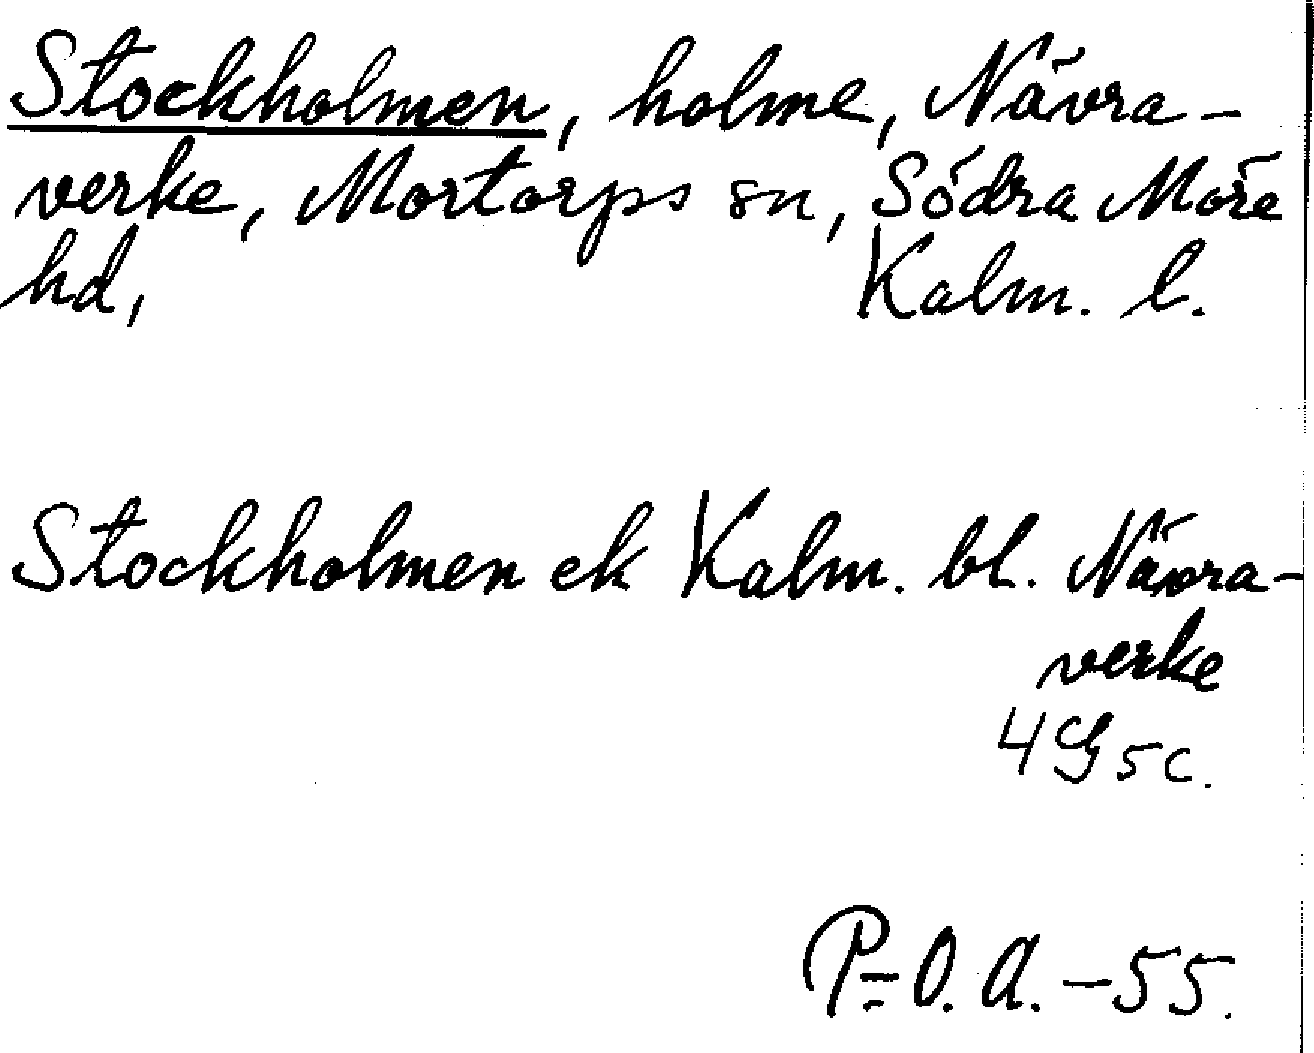 Stockholmen, holme, Nävra-
verke, Mortorps sn, Södra Möre
hd, Kalm. l.
Stockholmen ek Kalm. bl. Nävra-
verke
4G5c.
P-O. A. -55.